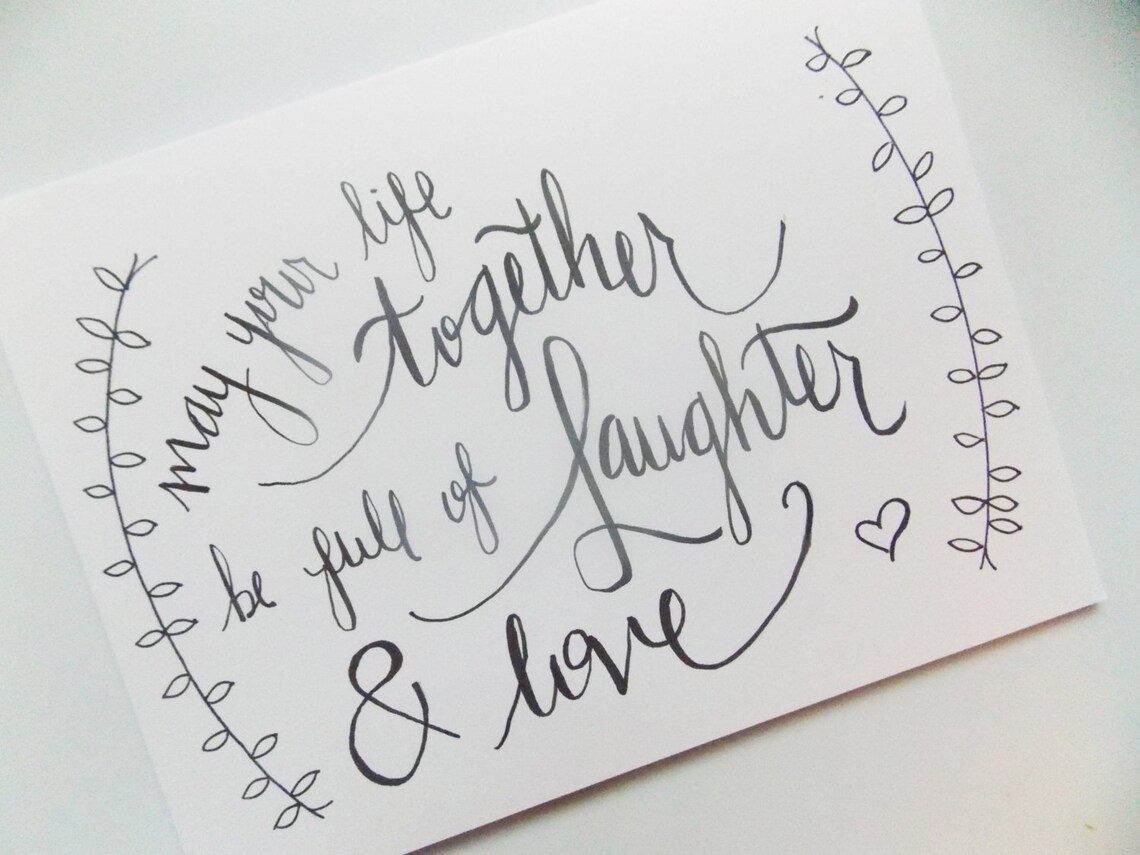 may your life
together
be full of laughter
& love